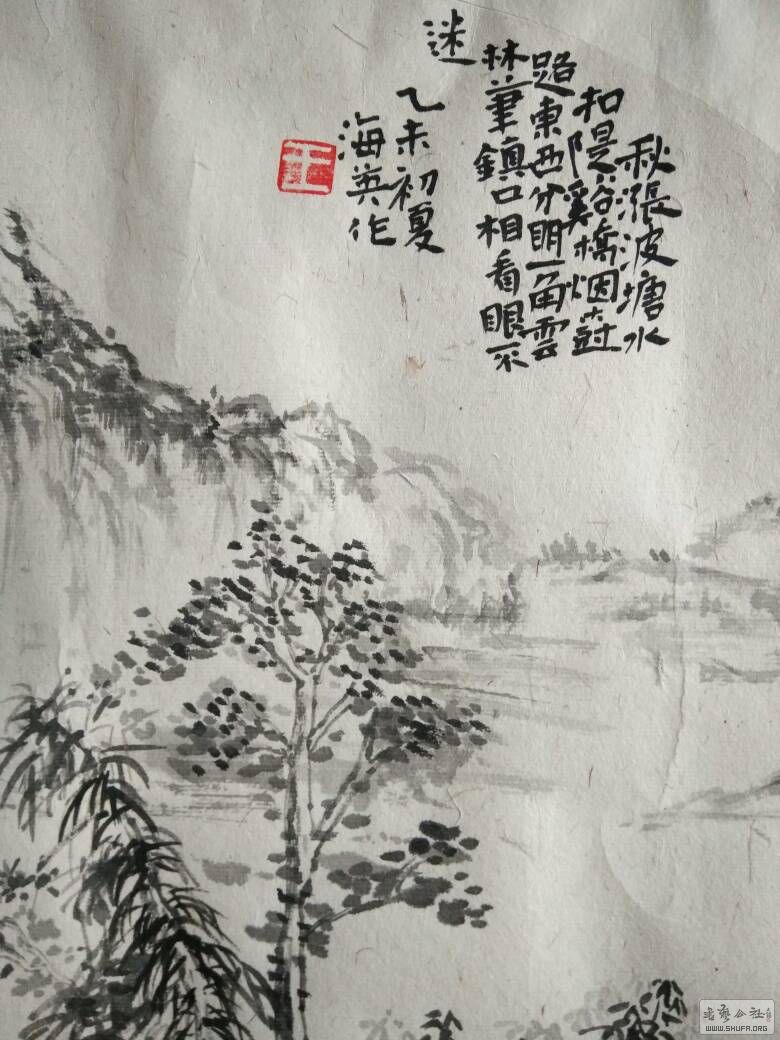 秋漲波塘水
扣隄谿橋烟樹
路東西分明一角雲
林筆鎮口相看眼不
迷
乙未初夏
海英作
王
书艺公社
WWW.SHUFA.ORG